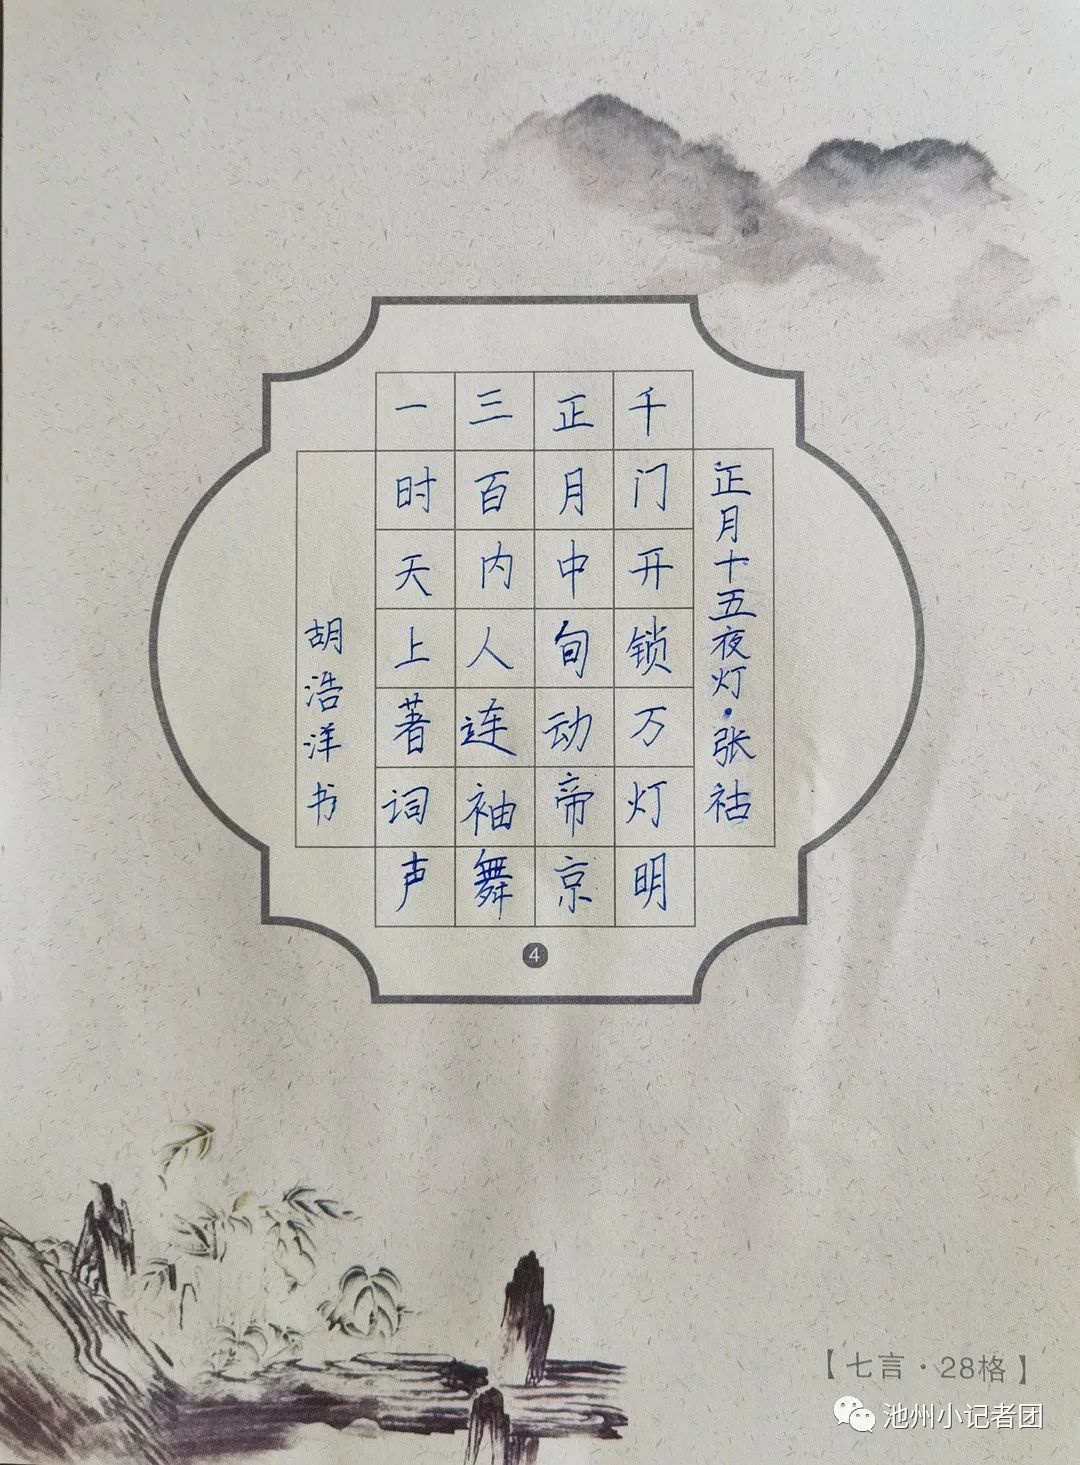 正月十五夜灯·张祜
千门开锁万灯明
正月中旬动帝京
三百内人连袖舞
一时天上著词声
胡浩洋书
4
【七言·28格】
池州小记者团